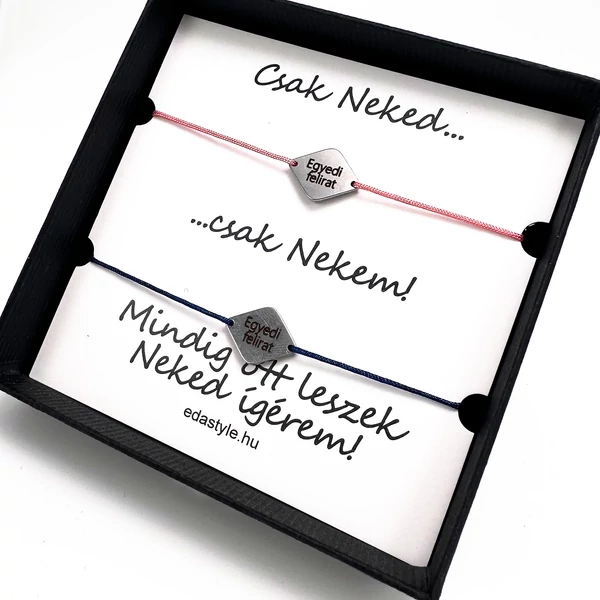 Csak Neked...
Egyedi
felirat
...csak Nekem!
Egyedi
felirat
Mindig ott leszek
Neked ígérem!
edastyle.hu